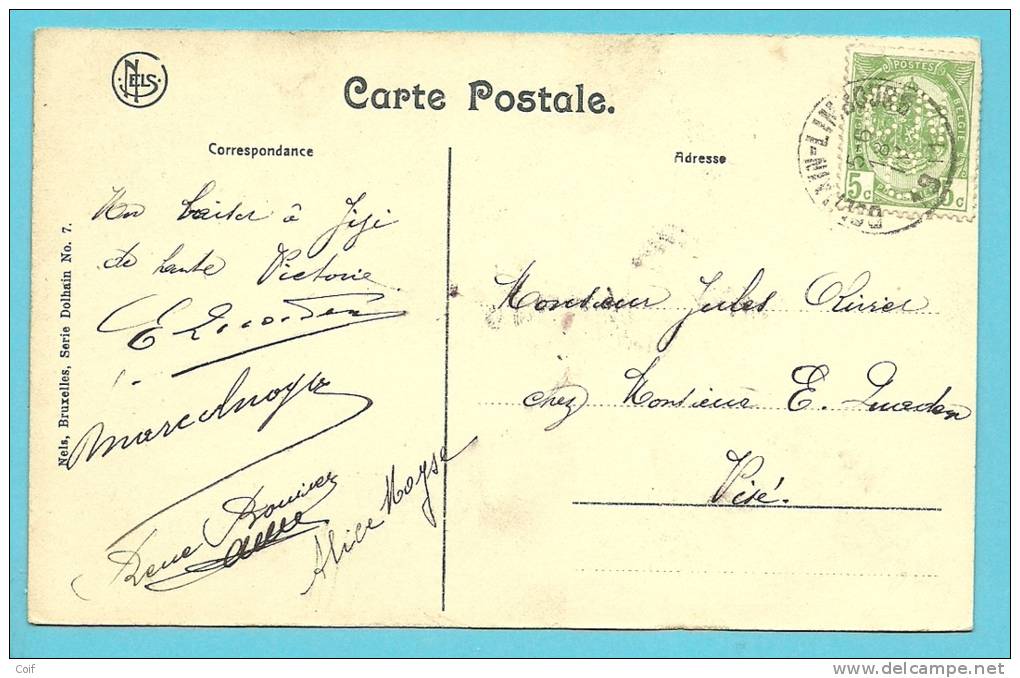 NELS
Carte Postale.
Correspondance
Adresse
POSTES
BELGIË
5c 5c
DOLHAIN-LIMBOURG
Un baiser à Jiji
de tante Victorie
E Quaden
Marc Moyse
René Bouvier
Alice Moyse
Monsieur Jules Olivier
chez Monsieur E. Quaden
Visé.
Nels, Bruxelles, Serie Dolhain No. 7.
Coif
www.delcampe.net